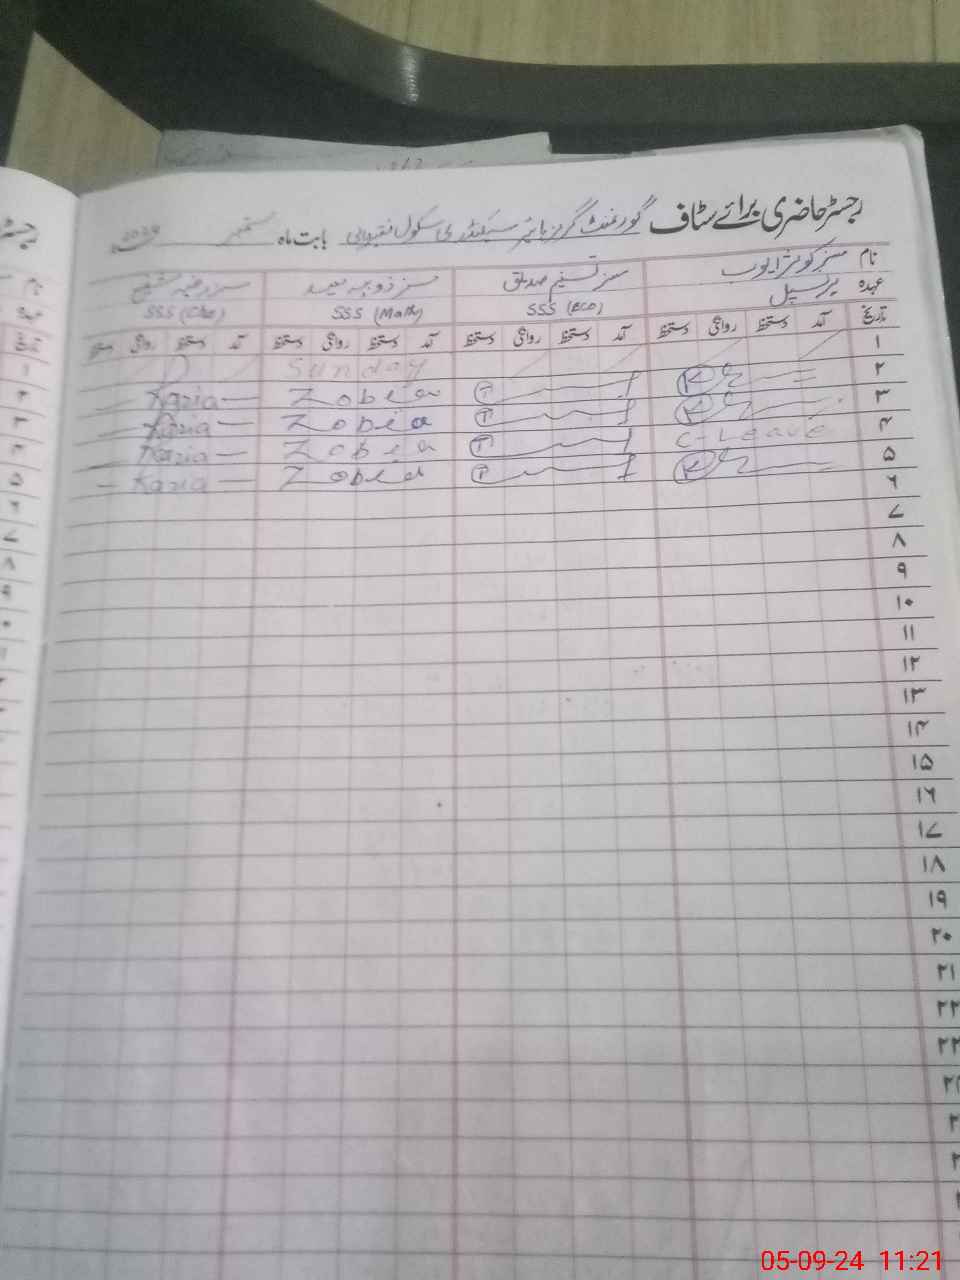 رجسٹر حاضری برائے سٹاف گورنمنٹ گرلز ہائیر سیکنڈری سکول بابت ماہ ستمبر 2024
نام مسز کوثر ایوب مسز تسنیم صدیق مسز زوبیہ سعید مسز رضیہ شفیع
عہدہ پرنسپل SSS (Eco) SSS (Math) SSS (Che)
تاریخ آمد دستخط روانگی دستخط آمد دستخط روانگی دستخط آمد دستخط روانگی دستخط آمد دستخط روانگی دستخط
۱ Sunday
۲ Zobia Razia
۳ Zobia Razia
۴ C-Leave Zobia Razia
۵ Zobia Razia
۶
۷
۸
۹
۱۰
۱۱
۱۲
۱۳
۱۴
۱۵
۱۶
۱۷
۱۸
۱۹
۲۰
۲۱
۲۲
۲۳
05-09-24 11:21